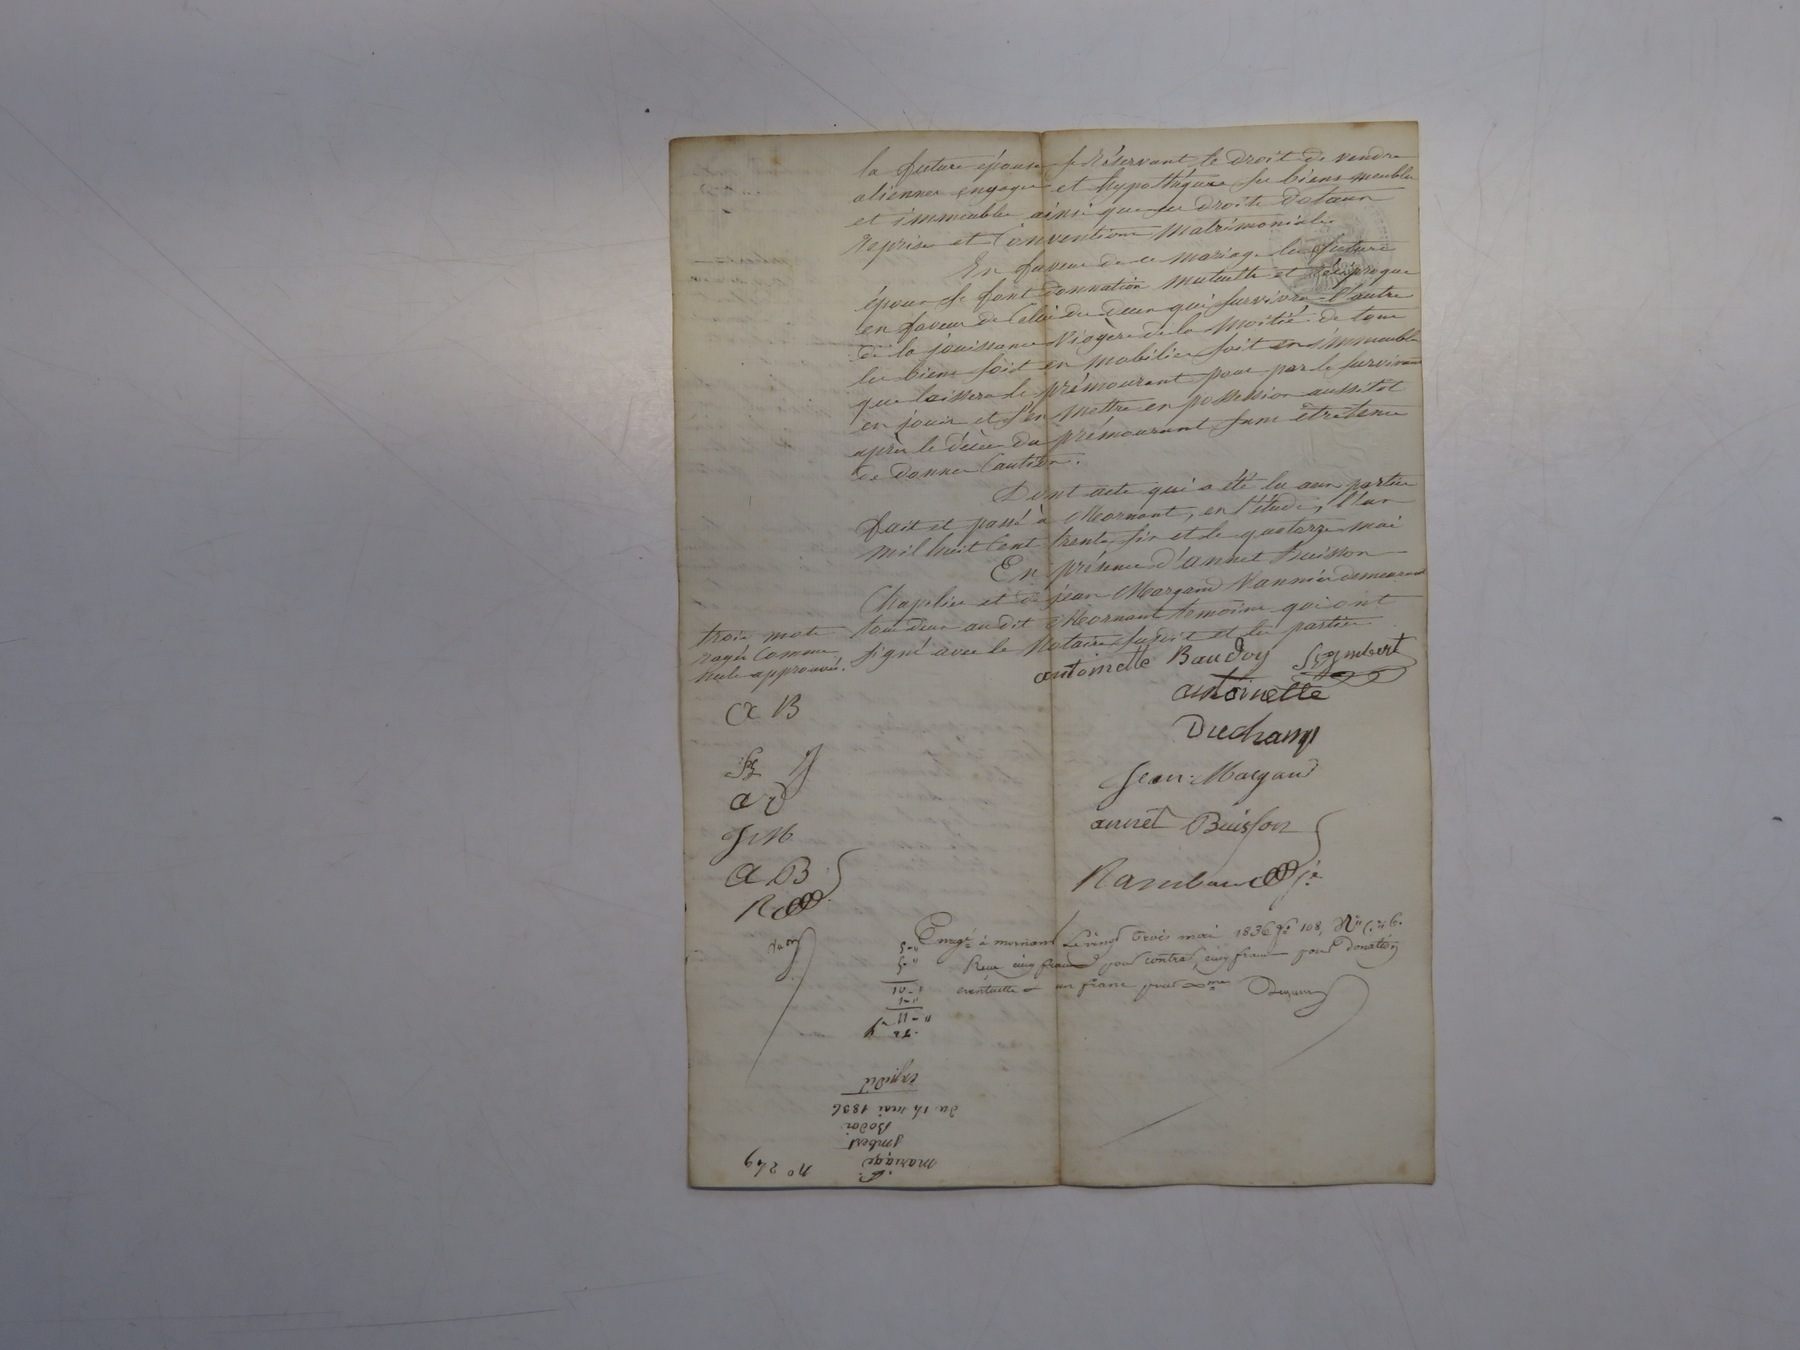 la future épouse se Réservant le droit de vendre
aliener engager et hypothéquer ses biens meubles
et immeubles ainsi que ses droits dotaux
reprises et Conventions Matrimoniales.
En faveur de ce mariage les futurs
époux se font donnation mutuelle et réciproque
en faveur de Celui des deux qui survivra l'autre
de la jouissance Viagère de la Moitié de tous
les biens soit en mobilier soit en immeubles
que laissera le prémourant pour par le survivant
en jouir et s'en mettre en possession aussitot
après le décès du prémourant sans être tenu
de donner Caution.
Dont acte qui a été lu aux parties
fait et passé à Mornant, en l'étude, l'an
mil huit Cent trente six et le quatorze mai
En présence d'annet Buisson
Chapelier et de jean Margand Vannier demeurant
tous deux audit Mornant temoins qui ont
signé avec le Notaire susdit et les parties
trois mots
rayés Comme
nuls approuvés.
antoinette Baudoy Imbert
antoinette
Duchamp
Jean Margand
annet Buisson
A B
A D
J M
A B
R
Enregé à mornant Le vingt trois mai 1836 fo 108, Ro C. 6.
Reçu cinq francs pour contrat, cinq francs pour donation
éventuelle & un franc pour Dme
No 249
mariage
Imbert
Bodoi
du 14 mai 1836
expédié